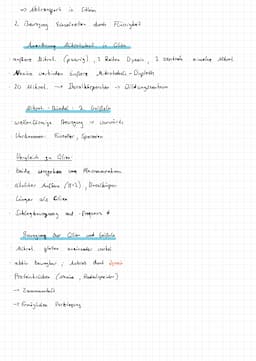 → Abtransport v. Schleim
2. Bewegung Einzelzellen durch Flüssigkeit
Anordnung Mikrotubuli in Cilien
äußere Mikrot. (          ), 2 Reihen Dynein, 2 zentrale einzelne Mikrot.
Nexine verbinden äußere Mikrotubuli-Dupletts
20 Mikrot. → Basalkörperchen → Bildungszentrum
Mikrot.-Bündel: 2. Geißeln
wellenförmige Bewegung → vorwärts
Vorkommen: Einzeller, Spermien
Vergleich zu Cilien:
Beide umgeben von Plasmamembran
ähnlicher Aufbau (9+2), Basalkörper
Länger als Cilien
Schlagbewegung und -frequenz ≠
Bewegung der Cilien und Geißeln
Mikrot. gleiten aneinander vorbei
aktiv bewegbar, Antrieb durch Dynein
Proteinbrücken (Nexine, Radialspeichen)
→ Zusammenhalt
→ Ermöglichen Verbiegung